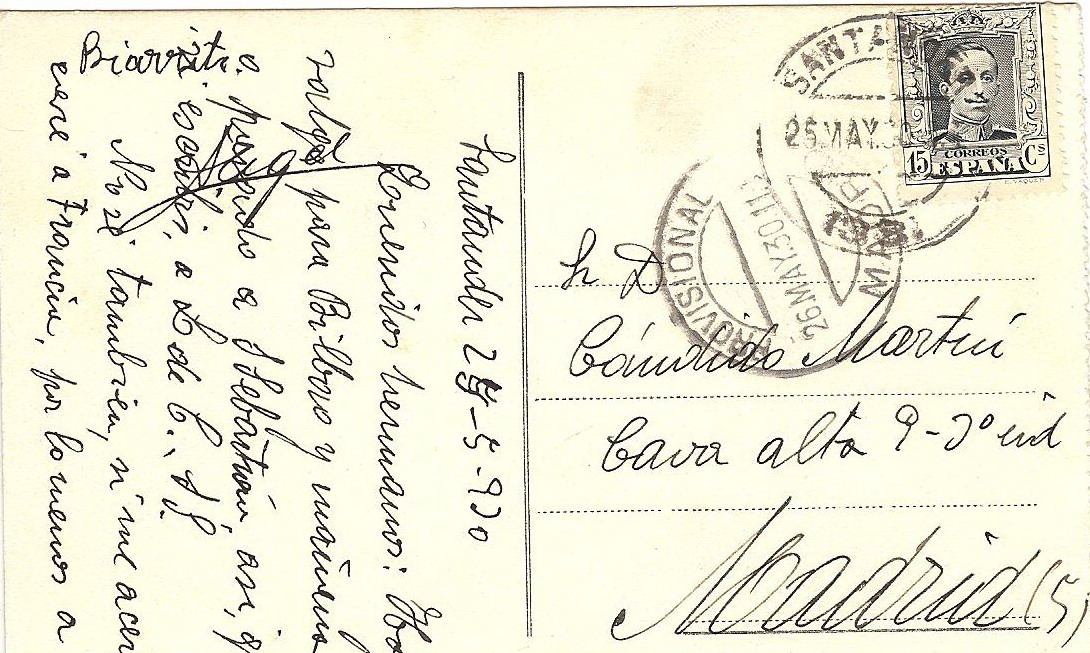 Santander 25-5-930
Queridos hermanos: Ho
salgo para Bilbao y mañana
o pasado a S Sebastián, asi, q
si escribis, a L de C., S S.
No sé tambien, si me acer
caré a Francia, por lo menos a
Biarritz.
SANTA
25 MAY. 30
CORREOS
15 ESPAÑA Cs
PROVISIONAL
26 MAY. 30. 11
MA
Sr D
Cándido Martín
Cava alta 9 - 3º izd
Madrid (5)